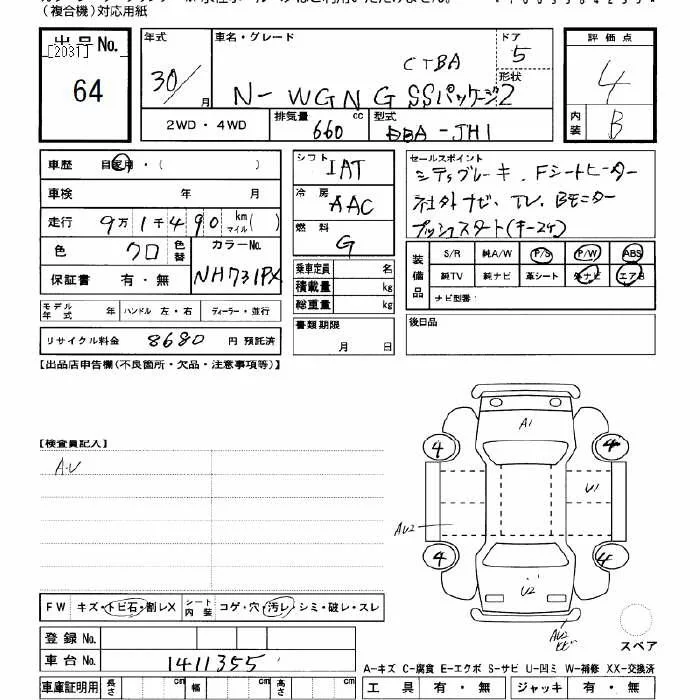 (複合機)対応用紙
出品No. [2031] 64
年式 30/ 月
車名・グレード CTBA
N-WGN G SSパッケージ2
ドア 5
形状
評価点 4
内装 B
2WD・4WD 排気量 660 cc 型式 DBA-JH1
車歴 自家用・( )
車検 年 月
走行 9万1千490 km マイル( )
色 クロ 色替 カラーNo. NH731PX
保証書 有・無
モデル年式 年 ハンドル 左・右 ディーラー・並行
リサイクル料金 8680 円 預託済
シフト IAT
冷房 AAC
燃料 G
乗車定員 名
積載量 kg
総重量 kg
書類期限 月 日
セールスポイント
シティブレーキ、Fシートヒーター
社外ナビ、TV、Bモニター
プッシュスタート(キー2ケ)
装備品 S/R 純A/W P/S P/W ABS
純TV 純ナビ 革シート 外ナビ エアB
ナビ型番:
後日品
[出品店申告欄(不良箇所・欠品・注意事項等)]
[検査員記入]
A・U
A1
4 4
U1
AU2
4 4
U2
AU2
スペア
FW キズ・トビ石・割レX シート内装 コゲ・穴・汚レ・シミ・破レ・スレ
登録No.
車台No. 1411355
A-キズ C-腐食 E-エクボ S-サビ U-凹ミ W-補修 XX-交換済
車庫証明用 長さ cm 幅 cm 高さ cm
工具 有・無 ジャッキ 有・無